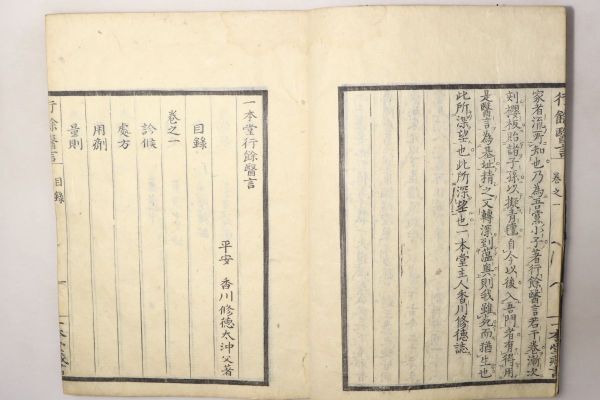 行餘醫言 卷之一
家者流所知也乃為吾黨小子著行餘醫言若干卷漸次
刻櫻板貽諸子孫以擬青氊自今以後入吾門者有得用
是醫言為基址精之又轉深到溫奧則我雖死而猶生也
此所深望也此所深望也一本堂主人香川修德誌
一本堂行餘醫言
平安 香川修德太沖父著
目錄
卷之一
診候
處方
用劑
量則
行餘醫言 目錄